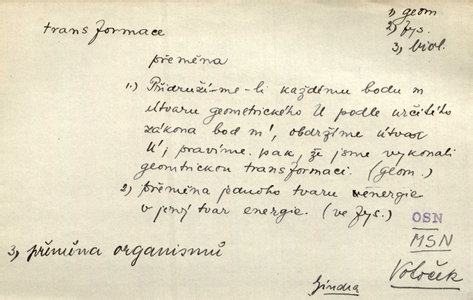 transformace
1) geom
2) fys.
3, biol.
přeměna
1.) Přidruží-me-li každému bodu m
útvaru geometrického U podle určitého
zákona bod m', obdržíme útvar
U'; pravíme pak, že jsme vykonali
geometrickou transformaci. (geom.)
2) přeměna jednoho tvaru energie
v jiný tvar energie. (ve fys.)
3, přeměna organismů
OSN
MSN
Voloček
Jindra